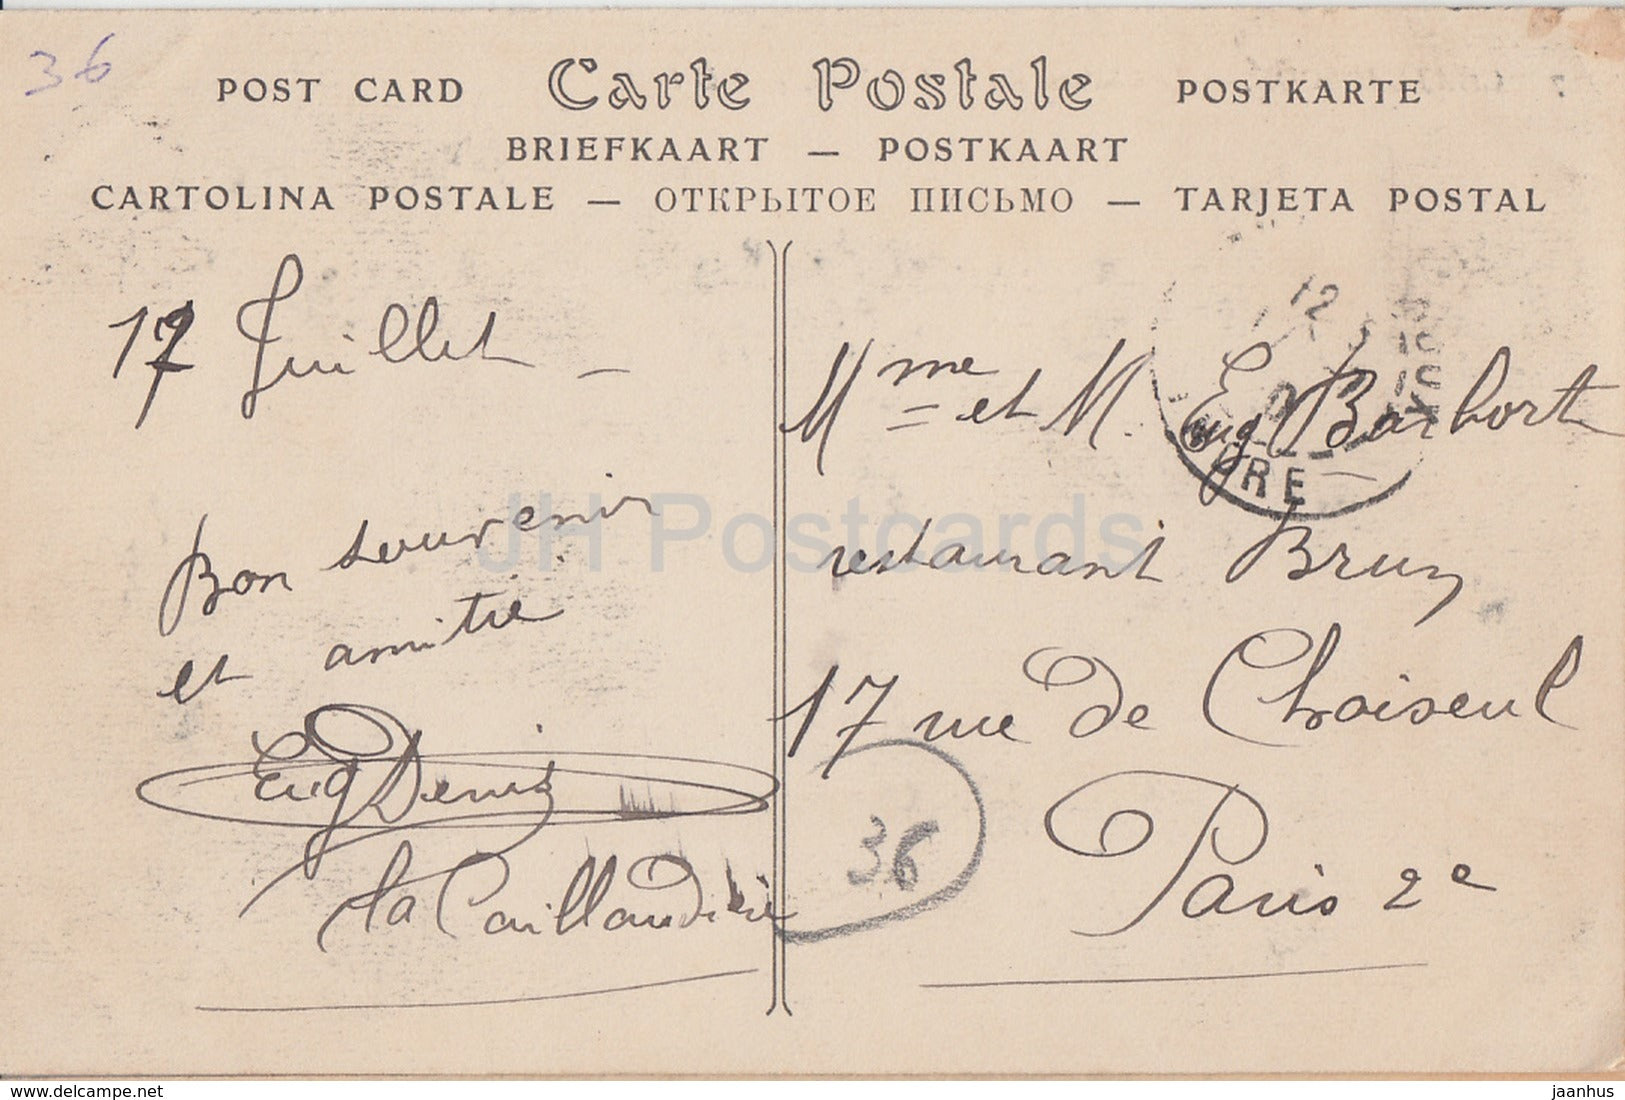 36
POST CARD Carte Postale POSTKARTE
BRIEFKAART — POSTKAART
CARTOLINA POSTALE — ОТКРЫТОЕ ПИСЬМО — TARJETA POSTAL
17 Juillet —
Bon souvenir
et amitié
Eug Denis
la Caillaudière
Mme et M. Eug Barbort
restaurant Brun
17 rue de Choiseul
Paris 2e
12
RE
36
JH Postcards
www.delcampe.net
jaanhus